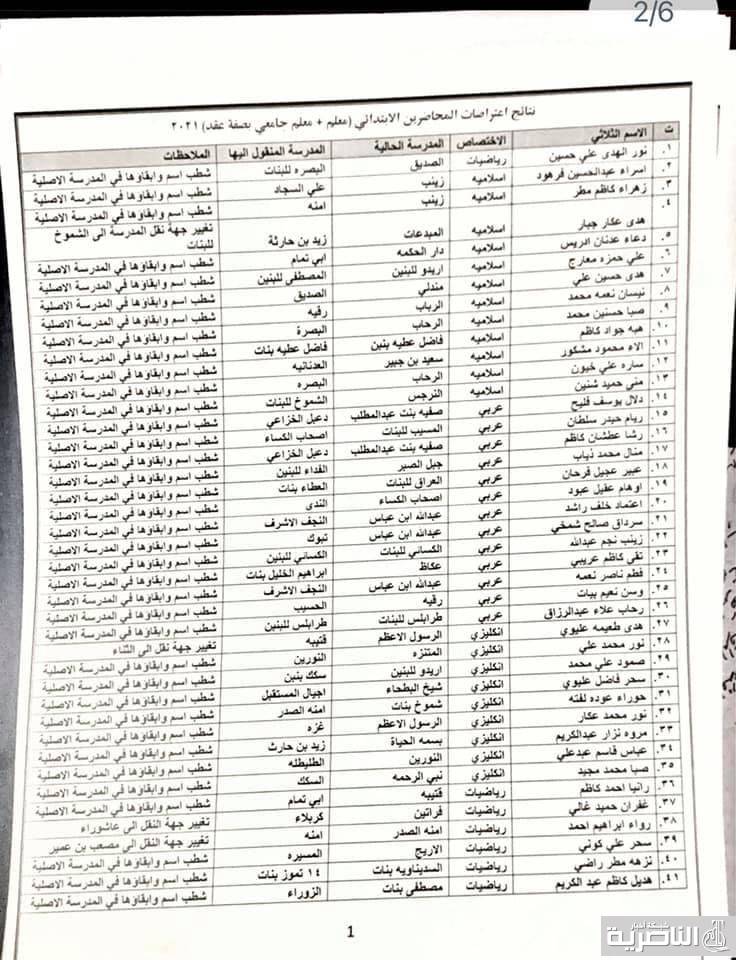 2/6
نتائج اعتراضات المحاضرين الابتدائي (معلم + معلم جامعي بصفة عقد) ٢٠٢١
ت الاسم الثلاثي الاختصاص المدرسة الحالية المدرسة المنقول اليها الملاحظات
١. نور الهدى علي حسين رياضيات الصديق البصره للبنات شطب اسم وابقاؤها في المدرسة الاصلية
٢. اسراء عبدالحسين فرهود اسلاميه زينب علي السجاد شطب اسم وابقاؤها في المدرسة الاصلية
٣. زهراء كاظم مطر اسلاميه زينب امنه شطب اسم وابقاؤها في المدرسة الاصلية
٤. هدى عكار جبار اسلاميه المبدعات زيد بن حارثة تغيير جهة نقل المدرسة الى الشموخ للبنات
٥. دعاء عدنان ادريس اسلاميه دار الحكمه ابي تمام شطب اسم وابقاؤها في المدرسة الاصلية
٦. علي حمزه معارج اسلاميه اريدو للبنين المصطفى للبنين شطب اسم وابقاؤها في المدرسة الاصلية
٧. هدى حسين علي اسلاميه مندلي الصديق شطب اسم وابقاؤها في المدرسة الاصلية
٨. نيسان نعمه محمد اسلاميه الرباب رقيه شطب اسم وابقاؤها في المدرسة الاصلية
٩. صبا حسنين محمد اسلاميه الرحاب البصرة شطب اسم وابقاؤها في المدرسة الاصلية
١٠. هبه جواد كاظم اسلاميه فاضل عطيه بنين فاضل عطيه بنات شطب اسم وابقاؤها في المدرسة الاصلية
١١. الاء محمود مشكور اسلاميه سعيد بن جبير العدنانيه شطب اسم وابقاؤها في المدرسة الاصلية
١٢. ساره علي خيون اسلاميه الرحاب البصره شطب اسم وابقاؤها في المدرسة الاصلية
١٣. منى حميد شنين اسلاميه النرجس الشموخ للبنات شطب اسم وابقاؤها في المدرسة الاصلية
١٤. دلال يوسف فليح عربي صفيه بنت عبدالمطلب دعبل الخزاعي شطب اسم وابقاؤها في المدرسة الاصلية
١٥. ريام حيدر سلطان عربي المسيب للبنات اصحاب الكساء شطب اسم وابقاؤها في المدرسة الاصلية
١٦. رشا عطشان كاظم عربي صفيه بنت عبدالمطلب دعبل الخزاعي شطب اسم وابقاؤها في المدرسة الاصلية
١٧. منال محمد ذياب عربي جبل الصبر الفداء للبنين شطب اسم وابقاؤها في المدرسة الاصلية
١٨. عبير عجيل فرحان عربي العراق للبنات العطاء بنات شطب اسم وابقاؤها في المدرسة الاصلية
١٩. اوهام عقيل عبود عربي اصحاب الكساء الندى شطب اسم وابقاؤها في المدرسة الاصلية
٢٠. اعتماد خلف راشد عربي عبدالله ابن عباس النجف الاشرف شطب اسم وابقاؤها في المدرسة الاصلية
٢١. سرداق صالح شمخي عربي عبدالله ابن عباس تبوك شطب اسم وابقاؤها في المدرسة الاصلية
٢٢. زينب نجم عبدالله عربي الكسائي للبنات الكسائي للبنين شطب اسم وابقاؤها في المدرسة الاصلية
٢٣. تقى كاظم عريبي عربي عكاظ ابراهيم الخليل بنات شطب اسم وابقاؤها في المدرسة الاصلية
٢٤. فطم ناصر نعمه عربي عبدالله ابن عباس النجف الاشرف شطب اسم وابقاؤها في المدرسة الاصلية
٢٥. وسن نعيم بيات عربي رقيه الحسيب شطب اسم وابقاؤها في المدرسة الاصلية
٢٦. رحاب علاء عبدالرزاق عربي طرابلس للبنات طرابلس للبنين شطب اسم وابقاؤها في المدرسة الاصلية
٢٧. هدى طعيمه عليوي انكليزي الرسول الاعظم قتيبه تغيير جهة نقل الى الثناء
٢٨. نور محمد علي انكليزي المتنزه النورين شطب اسم وابقاؤها في المدرسة الاصلية
٢٩. صمود علي محمد انكليزي اريدو للبنين سكك بنين شطب اسم وابقاؤها في المدرسة الاصلية
٣٠. سحر فاضل عليوي انكليزي شيخ البطحاء اجيال المستقبل شطب اسم وابقاؤها في المدرسة الاصلية
٣١. حوراء عوده لفته انكليزي شموخ بنات امنه الصدر شطب اسم وابقاؤها في المدرسة الاصلية
٣٢. نور محمد عكار انكليزي الرسول الاعظم غزه شطب اسم وابقاؤها في المدرسة الاصلية
٣٣. مروه نزار عبدالكريم انكليزي بسمه الحياة زيد بن حارث شطب اسم وابقاؤها في المدرسة الاصلية
٣٤. عباس قاسم عبدعلي انكليزي النورين الطليطله شطب اسم وابقاؤها في المدرسة الاصلية
٣٥. صبا محمد مجيد انكليزي نبي الرحمه السكك شطب اسم وابقاؤها في المدرسة الاصلية
٣٦. رانيا احمد كاظم رياضيات قتيبه ابي تمام شطب اسم وابقاؤها في المدرسة الاصلية
٣٧. غفران حميد غالي رياضيات فراتين كربلاء تغيير جهة النقل الى عاشوراء
٣٨. رواء ابراهيم احمد رياضيات امنه الصدر امنه تغيير جهة النقل الى مصعب بن عمير
٣٩. سحر علي كوني رياضيات الاريج المسيره شطب اسم وابقاؤها في المدرسة الاصلية
٤٠. نزهه مطر راضي رياضيات السديناويه بنات ١٤ تموز بنات شطب اسم وابقاؤها في المدرسة الاصلية
٤١. هديل كاظم عبد الكريم رياضيات مصطفى بنات الزوراء شطب اسم وابقاؤها في المدرسة الاصلية
1
شبكة اخبار
الناصرية